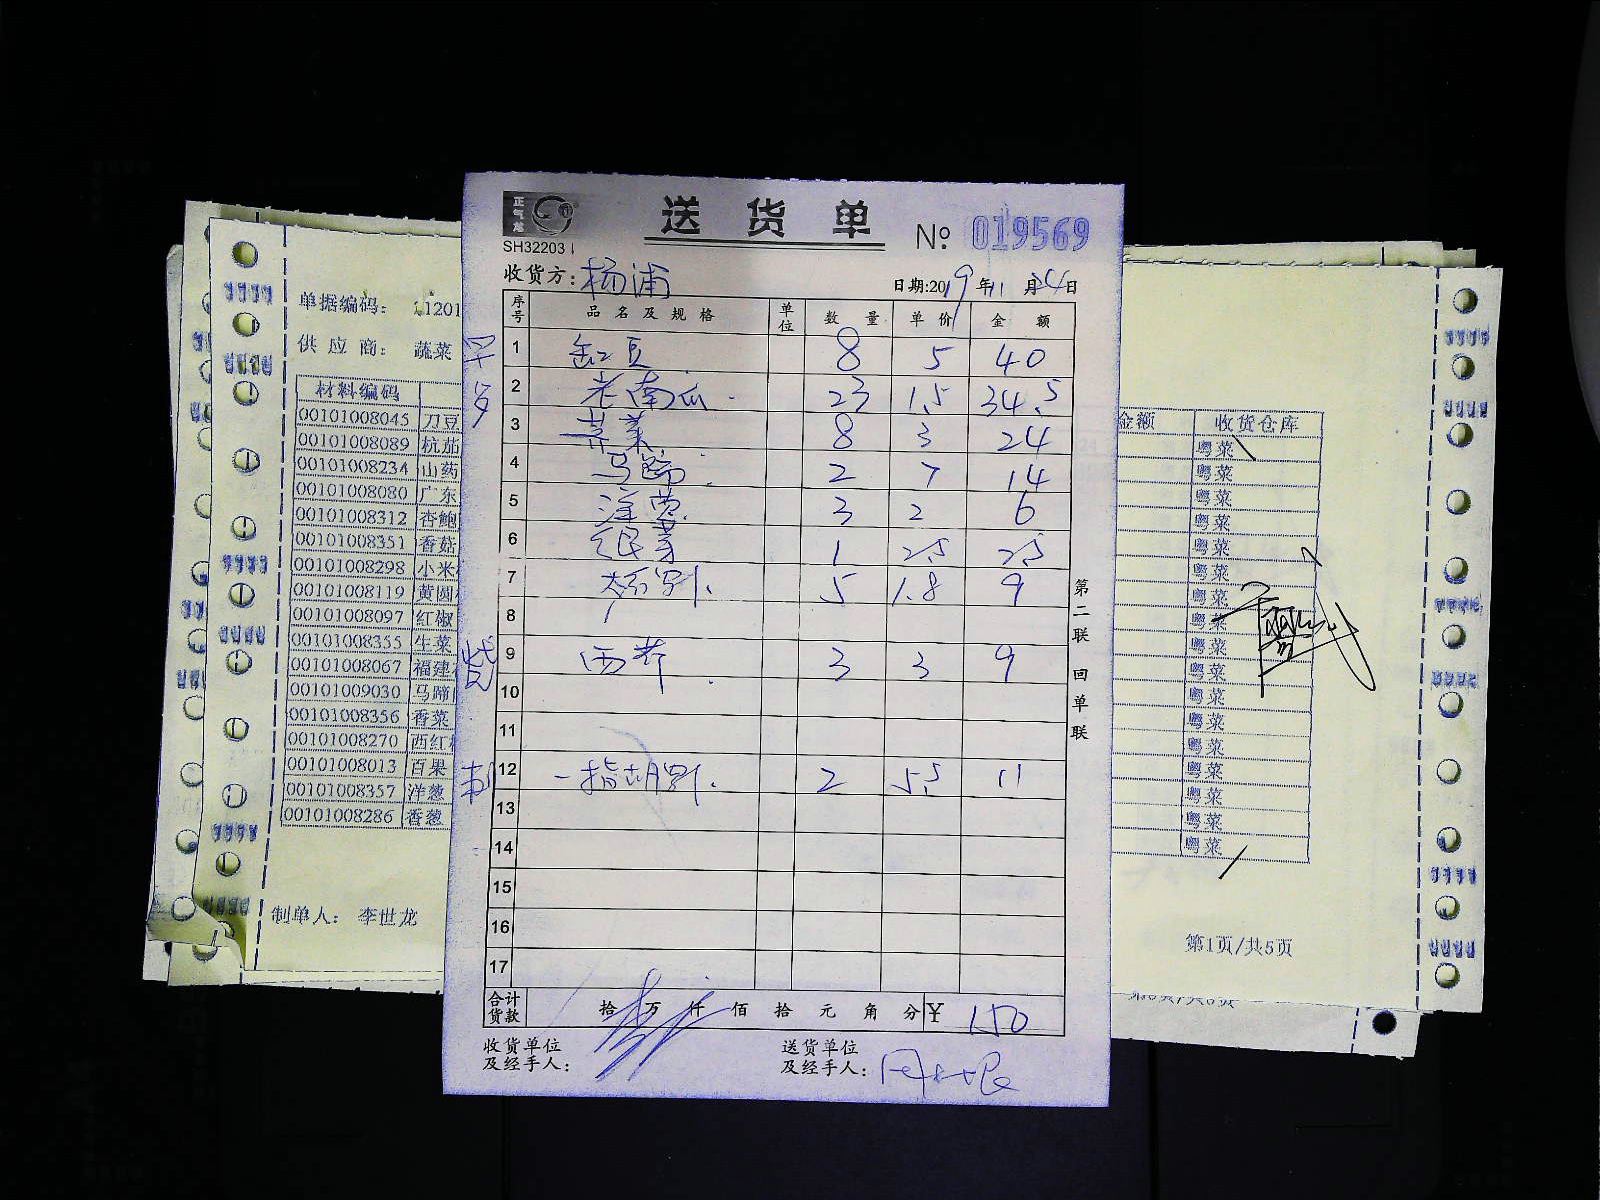 正气龙
SH322031
送货单
№ 019569
收货方：杨浦
日期:2019年11月24日
序号 品名及规格 单位 数量 单价 金额
1 缸豆 8 5 40
2 老南瓜 23 1.5 34.5
3 芹菜 8 3 24
4 马蹄 2 7 14
5 洋葱 3 2 6
6 银芽 1 2.5 2.5
7 5 1.8 9
8
9 西芹 3 3 9
10
11
12 2 5.5 11
13
14
15
16
17
合计货款 拾 万 仟 佰 拾 元 角 分 ¥ 150
收货单位及经手人：
送货单位及经手人：
第二联 回单联
单据编码：
供应商： 蔬菜
材料编码
00101008045 刀豆
00101008089 杭茄
00101008234 山药
00101008080 广东
00101008312 杏鲍
00101008351 香菇
00101008298 小米
00101008119 黄圆
00101008097 红椒
00101008355 生菜
00101008067 福建
00101009030 马蹄
00101008356 香菜
00101008270 西红
00101008013 百果
00101008357 洋葱
00101008286 香葱
制单人： 李世龙
金额 收货仓库
粤菜
粤菜
粤菜
粤菜
粤菜
粤菜
粤菜
粤菜
粤菜
粤菜
粤菜
粤菜
粤菜
粤菜
粤菜
粤菜
粤菜
第1页/共5页